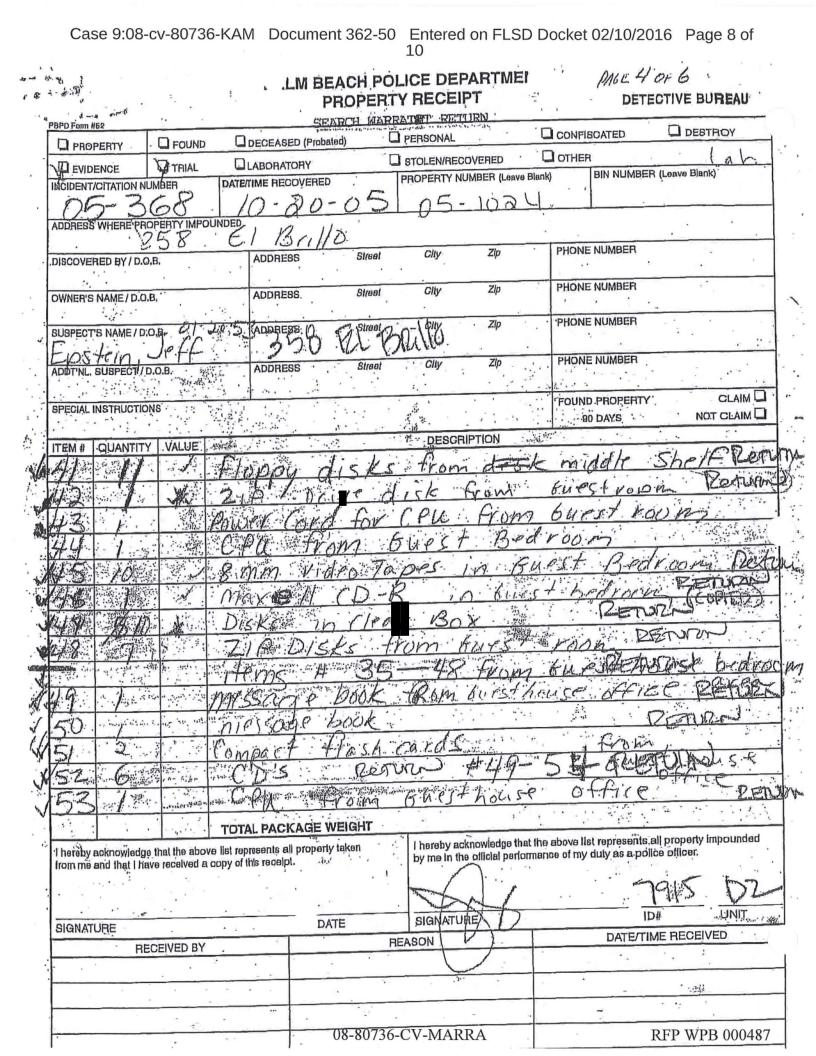 Case 9:08-cv-80736-KAM Document 362-50 Entered on FLSD Docket 02/10/2016 Page 8 of
10
LM BEACH POLICE DEPARTME
PAGE 4 OF 6
PROPERTY RECEIPT
DETECTIVE BUREAU
SEARCH WARRANT RETURN
PBPD Form #62
PROPERTY FOUND DECEASED (Probated) PERSONAL CONFISCATED DESTROY
EVIDENCE TRIAL LABORATORY STOLEN/RECOVERED OTHER Lab
INCIDENT/CITATION NUMBER DATE/TIME RECOVERED PROPERTY NUMBER (Leave Blank) BIN NUMBER (Leave Blank)
05-368 10-20-05 05-1024
ADDRESS WHERE PROPERTY IMPOUNDED
358 El Brillo
DISCOVERED BY / D.O.B. ADDRESS Street City Zip PHONE NUMBER
OWNER'S NAME / D.O.B. ADDRESS Street City Zip PHONE NUMBER
SUSPECT'S NAME / D.O.B. 01-20-53 ADDRESS Street City Zip PHONE NUMBER
Epstein, Jeff 358 El Brillo
ADDT'NL. SUSPECT / D.O.B. ADDRESS Street City Zip PHONE NUMBER
SPECIAL INSTRUCTIONS
FOUND PROPERTY CLAIM
90 DAYS NOT CLAIM
ITEM # QUANTITY VALUE DESCRIPTION
41 11 Floppy disks from desk middle Shelf Return
42 1 ZIP Drive disk from guest room Return
43 1 Power Cord for CPU from Guest room
44 1 CPU from Guest Bedroom
45 10 8 mm video Tapes in Guest Bedroom Return
46 1 Maxell CD-R in guest bedroom RETURN (COPIED)
Disks in Clear Box RETURN
48 7 ZIP Disks from Guest room RETURN
items # 35-48 from bedroom
49 1 message book from guesthouse office RETURN
50 1 message book RETURN
51 2 Compact flash cards from
52 6 CD's RETURN #49-5 guesthouse office
53 1 CPU from Guesthouse office RETURN
TOTAL PACKAGE WEIGHT
I hereby acknowledge that the above list represents all property taken
from me and that I have received a copy of this receipt.
I hereby acknowledge that the above list represents all property impounded
by me in the official performance of my duty as a police officer.
7915 D2
SIGNATURE DATE SIGNATURE ID# UNIT
RECEIVED BY REASON DATE/TIME RECEIVED
08-80736-CV-MARRA
RFP WPB 000487